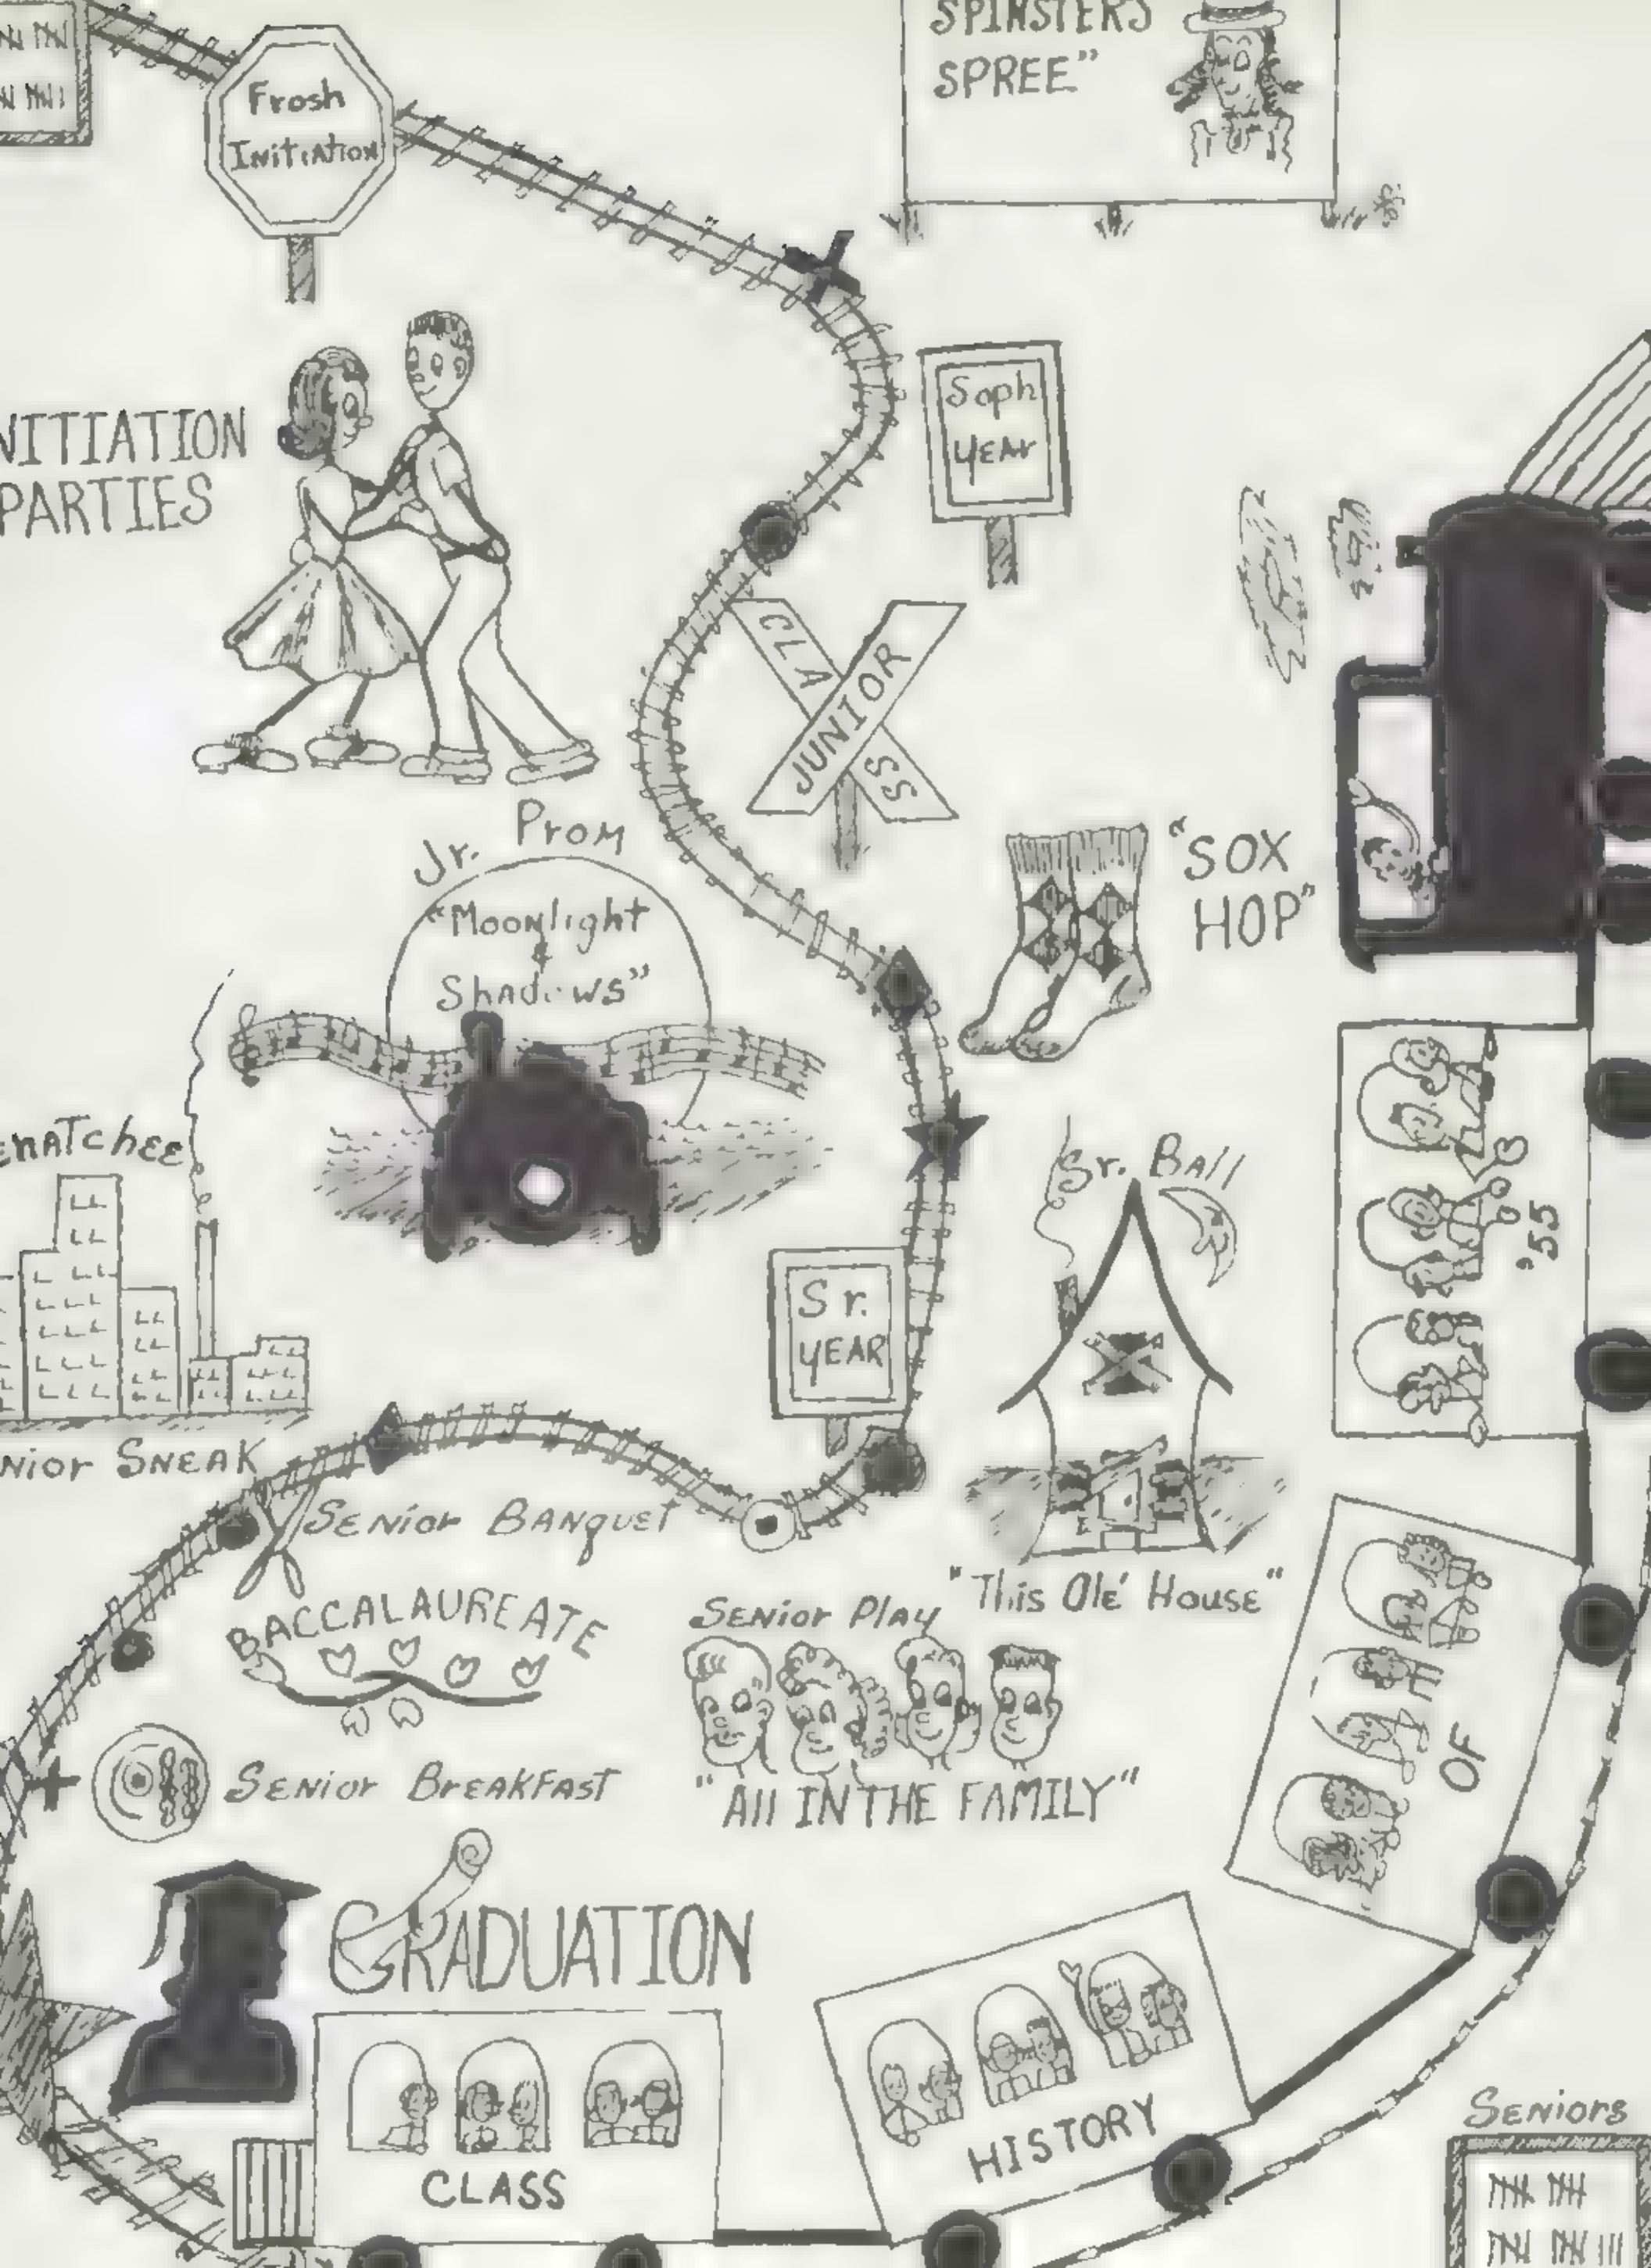 SPINSTERS
SPREE"
Frosh
INITIATION
Soph
YEAR
NITIATION
PARTIES
CLASS
JUNIOR
Jr. Prom
"Moonlight
&
Shadows"
"SOX
HOP"
enatchee
Sr. Ball
'55
Sr.
YEAR
nior Sneak
Senior Banquet
"This Ole' House"
BACCALAUREATE
Senior Play
"All IN THE FAMILY"
Senior Breakfast
OF
GRADUATION
HISTORY
CLASS
Seniors